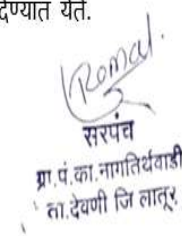 देण्यात येते.
सरपंच
ग्रा.पं.का.नागतिर्थवाडी
ता.देवणी जि लातूर